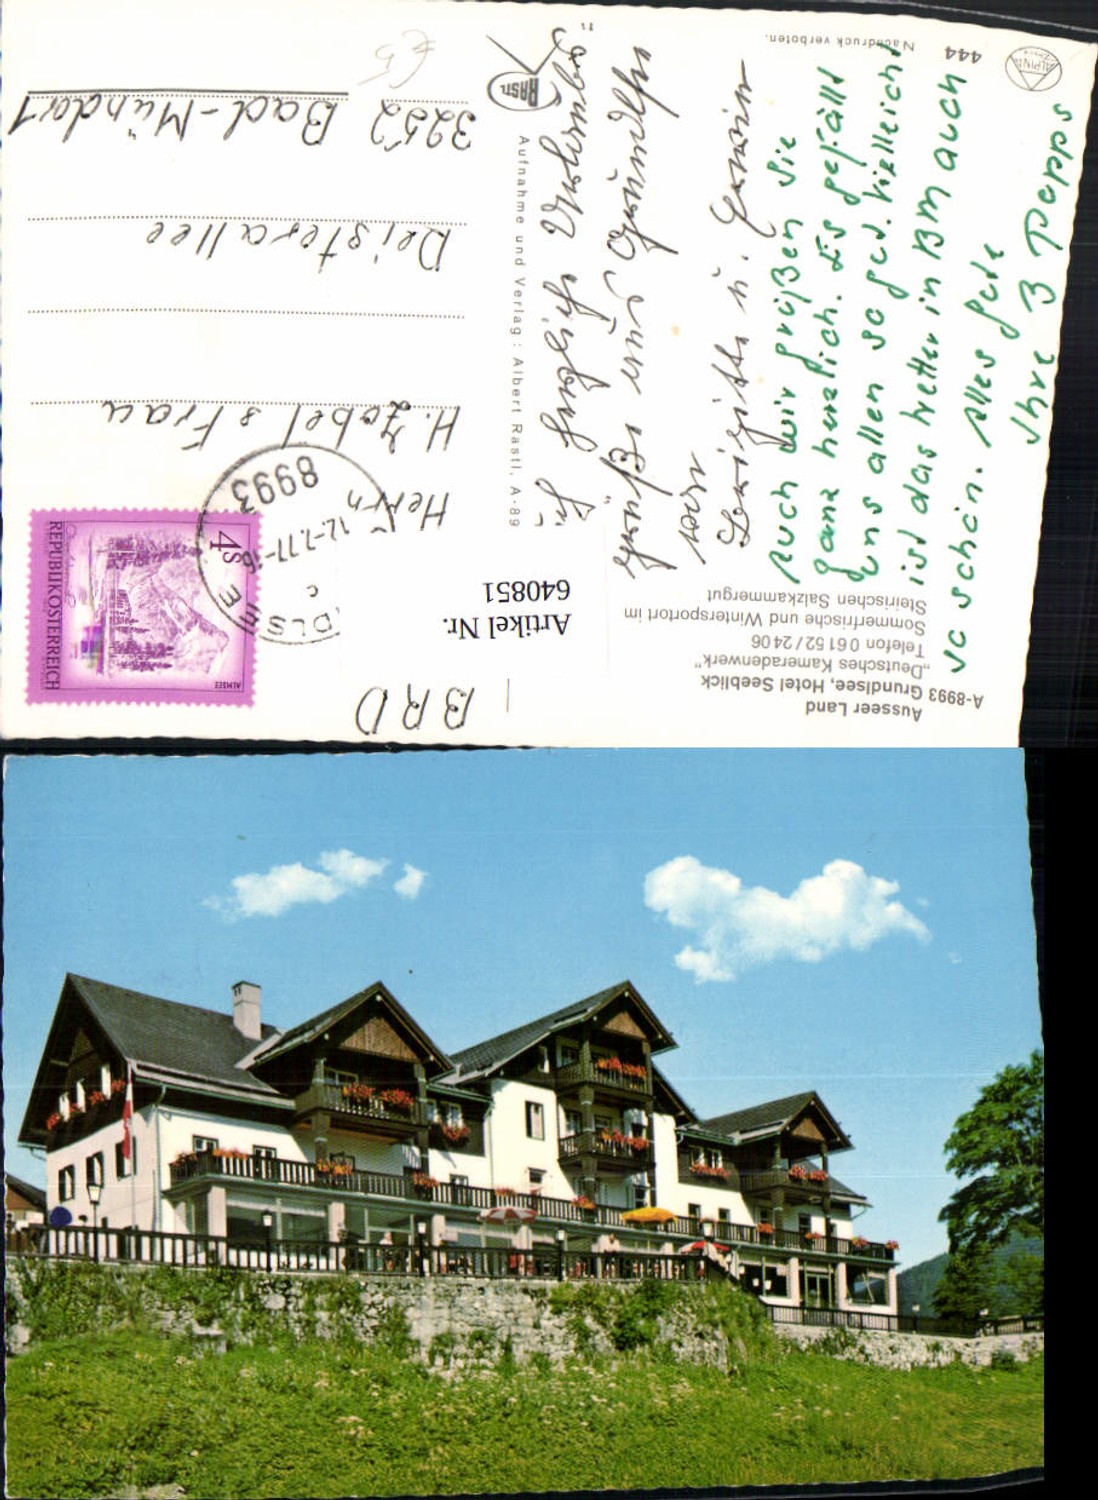 Ausseer Land
A-8993 Grundlsee, Hotel Seeblick
„Deutsches Kameradenwerk"
Telefon 0 61 52 / 24 06
Sommerfrische und Wintersportort im
Steirischen Salzkammergut
444
Nachdruck verboten.
ALPINE
RASTL
Aufnahme und Verlag: Albert Rastl, A-89
Artikel Nr.
640851
BRD
REPUBLIK ÖSTERREICH
4S
ALMSEE
8993
12.-7.77-16
DLSEE
c
Herrn
H. Zobel & Frau
Deisterallee
3252 Bad-Münder 1
€5
Auch wir grüßen Sie
ganz herzlich. Es gefällt
uns allen so gut. Vielleicht
ist das Wetter in BM auch
so schön. Alles Gute
Ihre 3 Popps